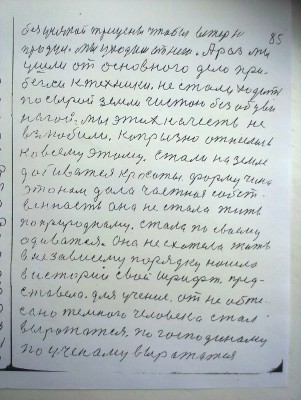 85
без всякой трещены чтобы ветер не
продул. мы уходим от нея. А раз мы
ушли от основного дело при-
бегли к технике. не стали ходить
по сырой земли чистою без обуви
ногой. мы этих качеств не
взлюбили, капризно отнеслись
ко всему этому. стали на земле
добиватся красоты форму чина
это нам дала частная собст-
венность она не стала жить
по природному. стала по своему
одеватся. Она не схотела жить
в независиму порядку нашла
в истории свой шрифт пред-
ставела для учения. от не обте-
сано темного человека стал
выражатся. по господиному
по ученаму выражатся